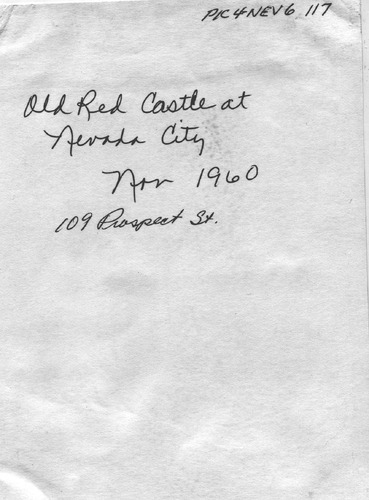 PIC 4 NEV 6 117
Old Red Castle at
Nevada City
Nov 1960
109 Prospect St.